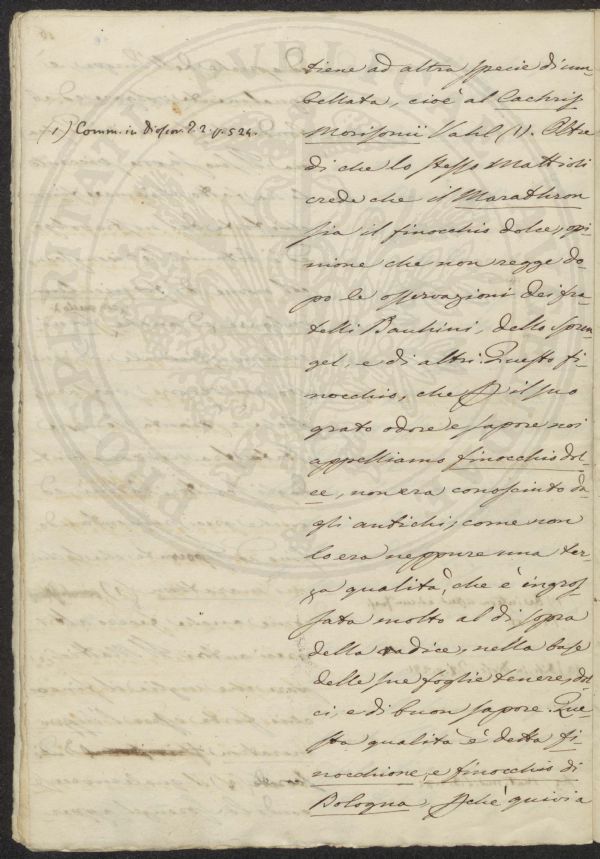 tiene ad altra specie di um-
bellata, cioè al Cachris
Morisonii Vahl (1). Oltre
(1) Comm. in Dioscor. T. 2. p. 524.
di che lo stesso Mattioli
crede che il Marathron
sia il finocchio dolce, opi-
nione che non regge do-
po le osservazioni dei fra-
telli Bauhini, dello Spren-
gel, e di altri. Questo fi-
nocchio, che p il suo
grato odore e sapore noi
appelliamo finocchio dol-
ce, non era conosciuto da-
gli antichi, come non
lo era neppure una ter-
za qualità, che è ingros-
sata molto al di sopra
della radice, nella base
delle sue foglie tenere, dol-
ci, e di buon sapore. Que-
sta qualità è detta fi-
nocchione, e finocchio di
Bologna, pchè quivi a